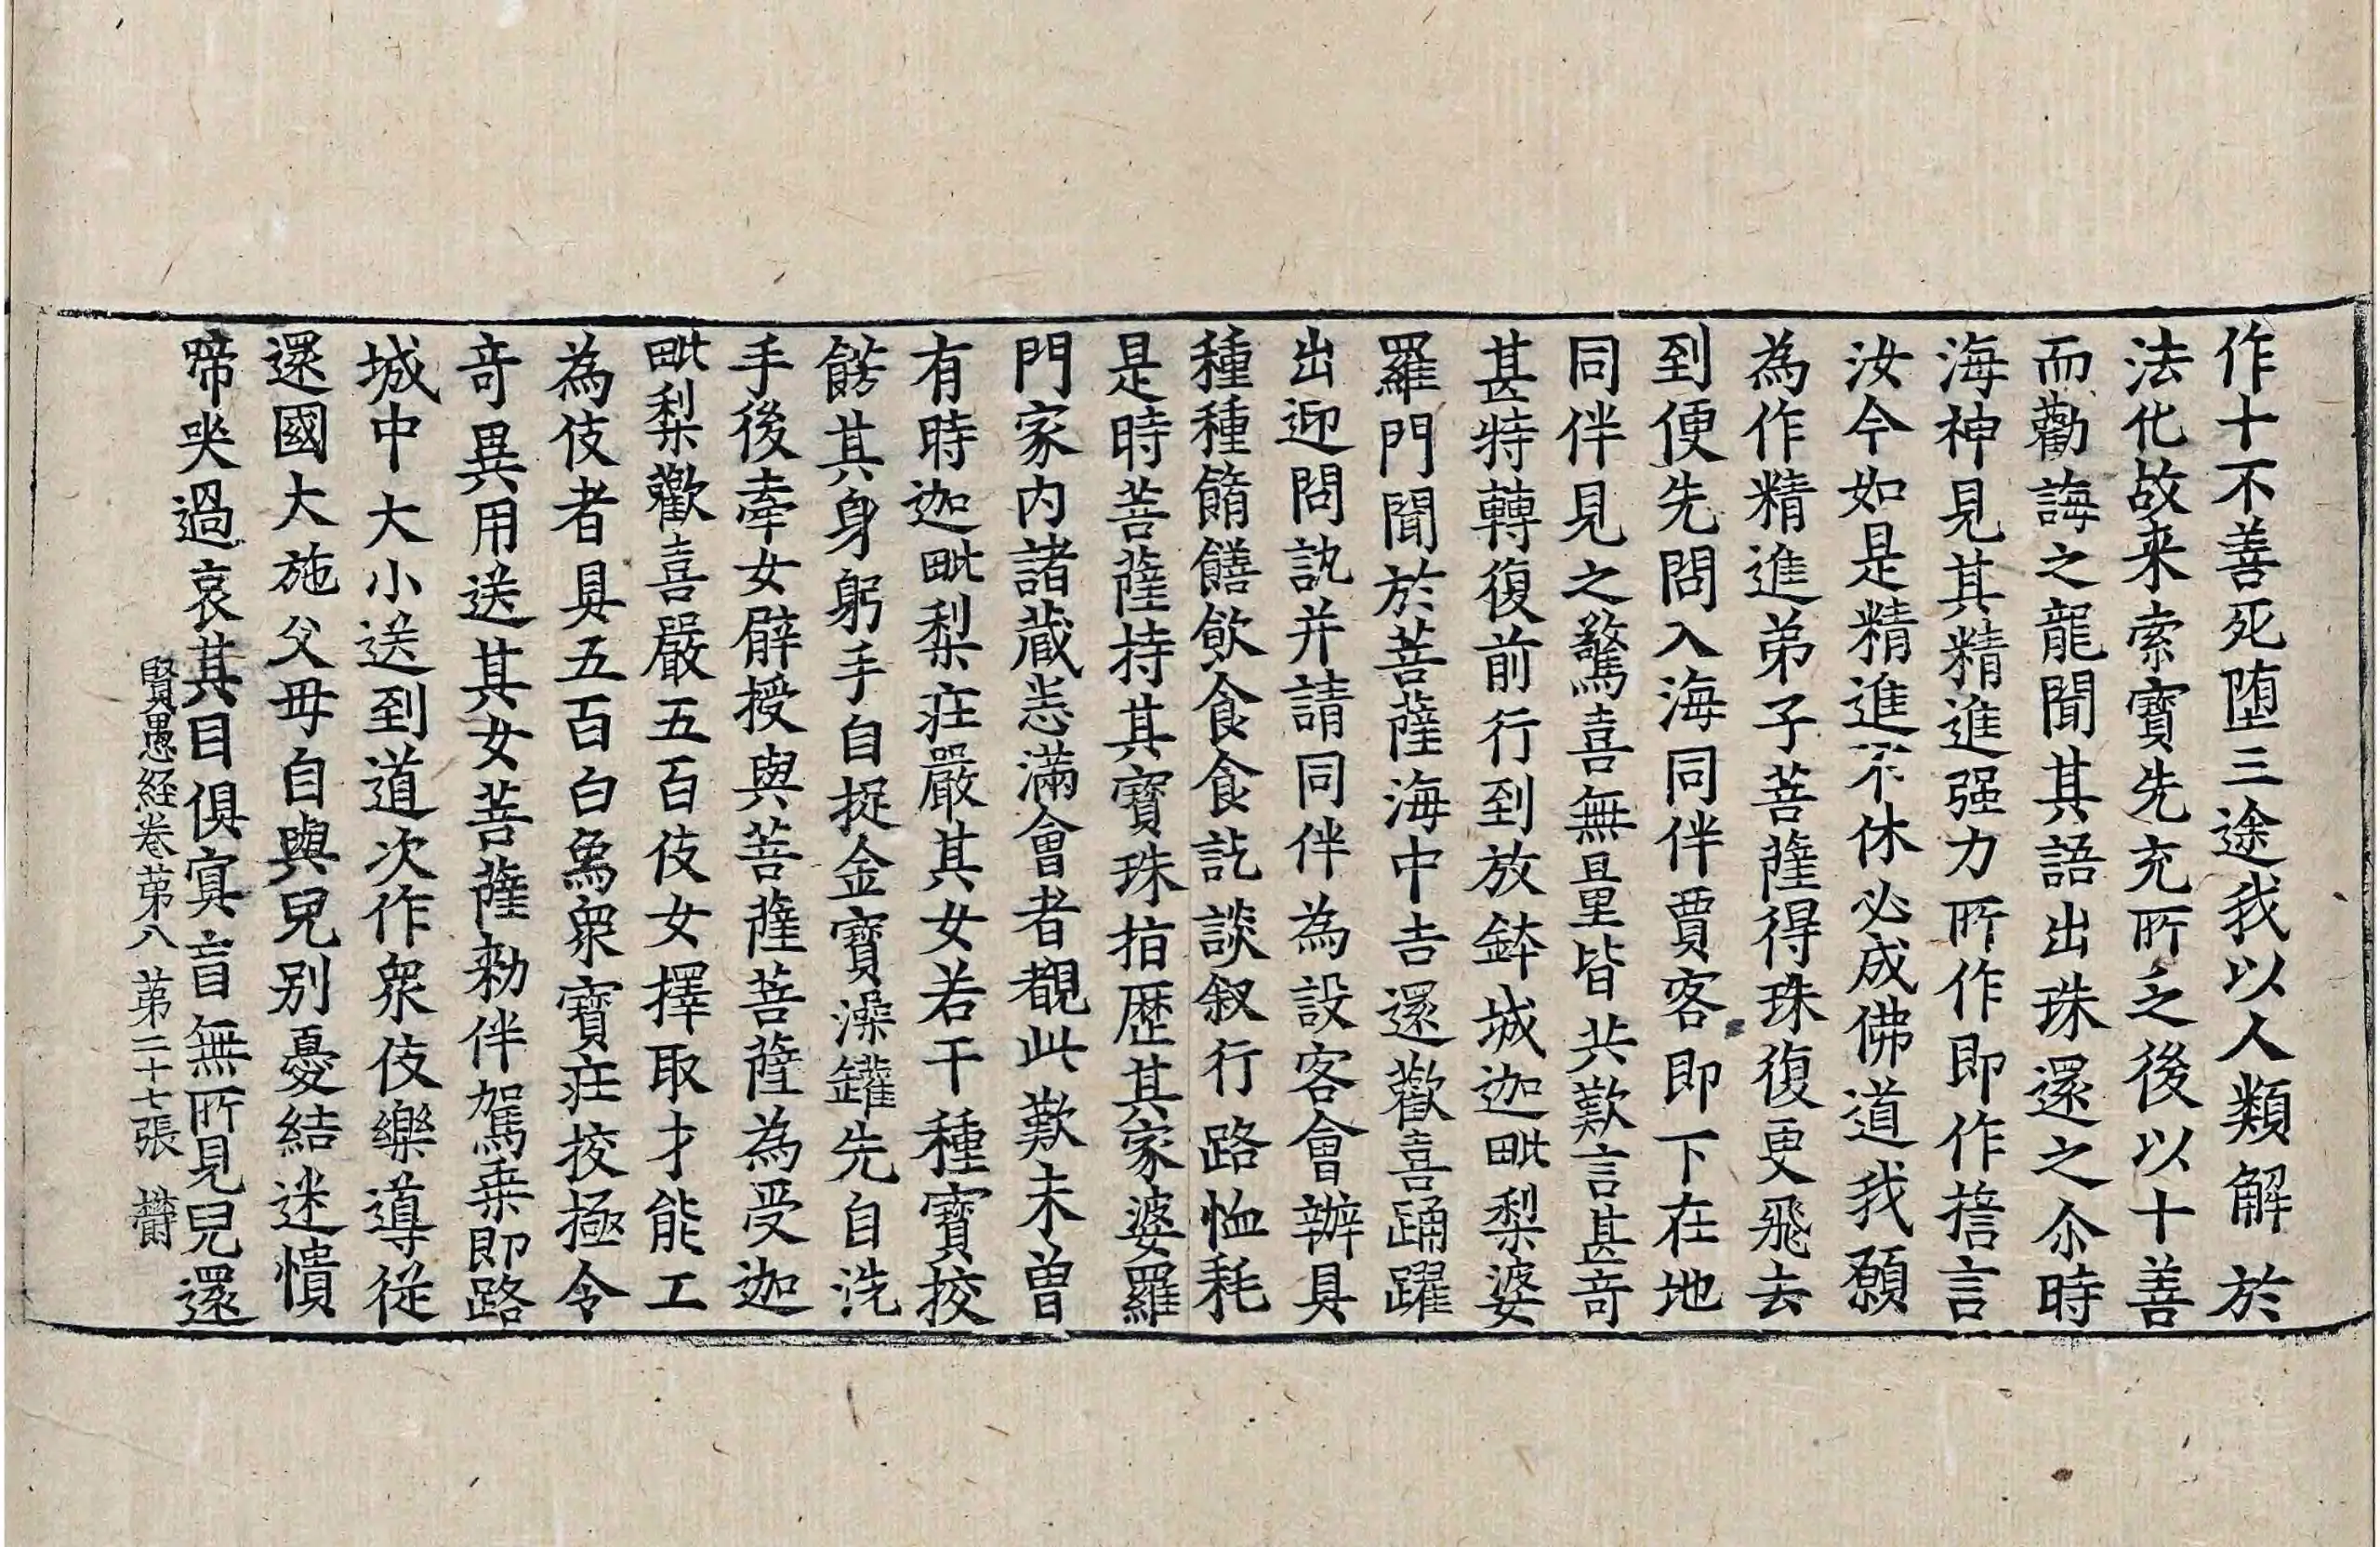 作十不善死堕三途我以人類解於
法化故来索寳先充所乏後以十善
而勸誨之龍聞其語出珠還之尒時
海神見其精進强力所作即作擔言
汝今如是精進不休必成佛道我願
為作精進弟子菩薩得珠復更飛去
到便先問入海同伴賈客即下在地
同伴見之驚喜無量皆共歎言甚奇
甚特轉復前行到放鉢城迦毗梨婆
羅門聞於菩薩海中吉還歡喜踊躍
出迎問訊并請同伴為設客會辦具
種種餚饍飲食食訖談叙行路恤耗
是時菩薩持其寳珠指歴其家婆羅
門家内諸藏悉滿會者覩此歎未曾
有時迦毗梨莊嚴其女若干種寳挍
餝其身躬手自捉金寳澡罐先自洗
手後牽女臂授與菩薩菩薩為受迦
毗梨歡喜嚴五百伎女擇取才能工
為伎者具五百白象衆寳莊挍極令
奇異用送其女菩薩勑伴駕乗即路
城中大小送到道次作衆伎樂導従
還國大施父母自與兒别憂結迷憒
啼哭過哀其目俱冥盲無所見兒還
賢愚経卷第八 第二十七張 欝